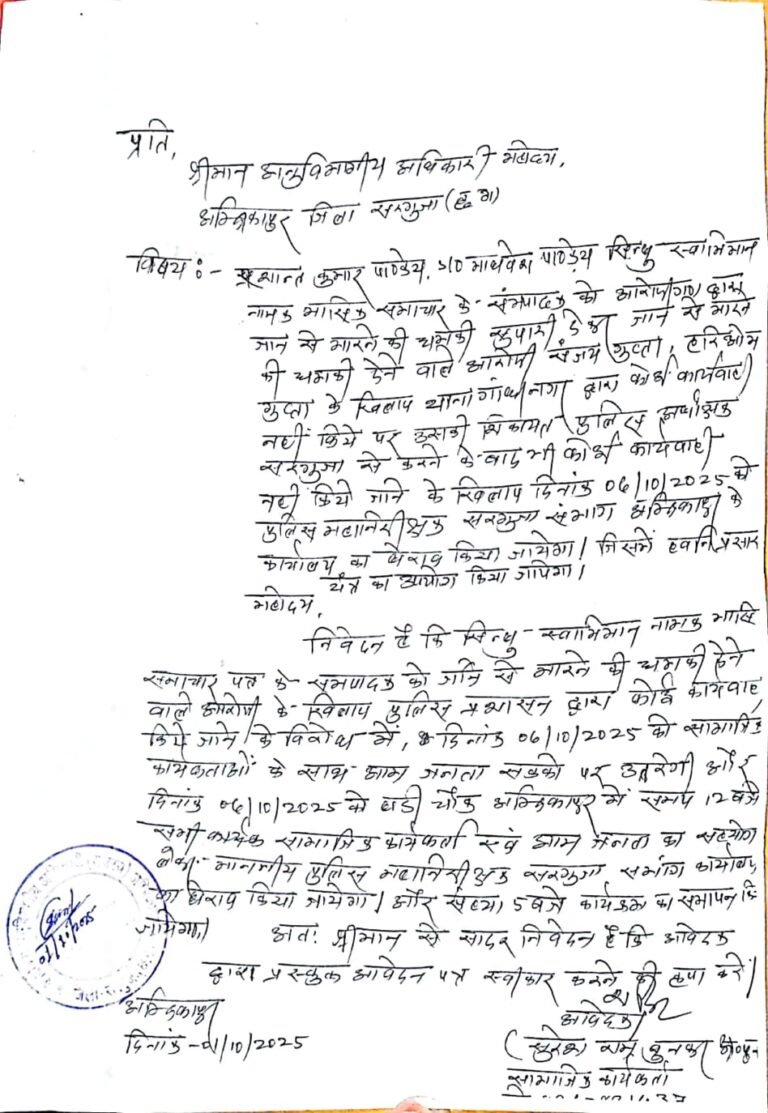 प्रति,
श्रीमान अनुविभागीय अधिकारी महोदय,
अम्बिकापुर जिला सरगुजा (छ ग)
विषय :- प्रशान्त कुमार पाण्डेय, S/O माधवेश पाण्डेय सिन्धु स्वाभिमान
नामक मासिक समाचार के संम्पादक को आरोपीगण द्वारा
जान से मारने की धमकी सुपारी देकर जान से मारने
की धमकी देने वाले आरोपी संजय गुप्ता, हरिओम
गुप्ता के खिलाप थाना गांधीनगर द्वारा कोई कार्यवाही
नहीं किये पर उसकी शिकायत पुलिस अधीक्षक
सरगुजा से करने के बाद भी कोई कार्यवाही
नहीं किये जाने के खिलाप दिनांक 06/10/2025 को
पुलिस महानिरीक्षक सरगुजा संभाग अम्बिकापुर के
कार्यालय का घेराव किया जायेगा। जिसमें ध्वनि प्रसार
यंत्र का उपयोग किया जायेगा।
महोदय,
निवेदन है कि सिन्धु-स्वाभिमान नामक मासि
समाचार पत्र के सम्पादक को जान से मारने की धमकी देने
वाले आरोपी के खिलाप पुलिस प्रशासन द्वारा कोई कार्यवाह
किये जाने के विरोध में, दिनांक 06/10/2025 को सामाजिक
कार्यकर्ताओं के साथ आम जनता सडको पर उतरेगी और
दिनांक 06/10/2025 को घडी चौक अम्बिकापुर में समय 12 बजे
सभी सामाजिक कार्यकर्ता एवं आम जनता का सहयोग
लेकर माननीय पुलिस महानिरीक्षक सरगुजा संभाग कार्यालय
का घेराव किया जायेगा। और संध्या 5 बजे कार्यक्रम का समापन कि
जायेगा। अतः श्रीमान से सादर निवेदन है कि आवेदक
द्वारा प्रस्तुत आवेदन पत्र स्वीकार करने की कृपा करें।
अम्बिकापुर
दिनांक - 01/10/2025
आवेदक
(सुरेश राम बुनकर
सामाजिक कार्यकर्ता